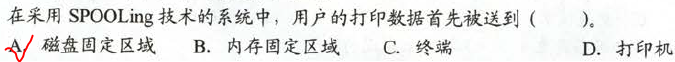 在采用 SPOOLing 技术的系统中，用户的打印数据首先被送到（　　）。
A. 磁盘固定区域　　B. 内存固定区域　　C. 终端　　D. 打印机